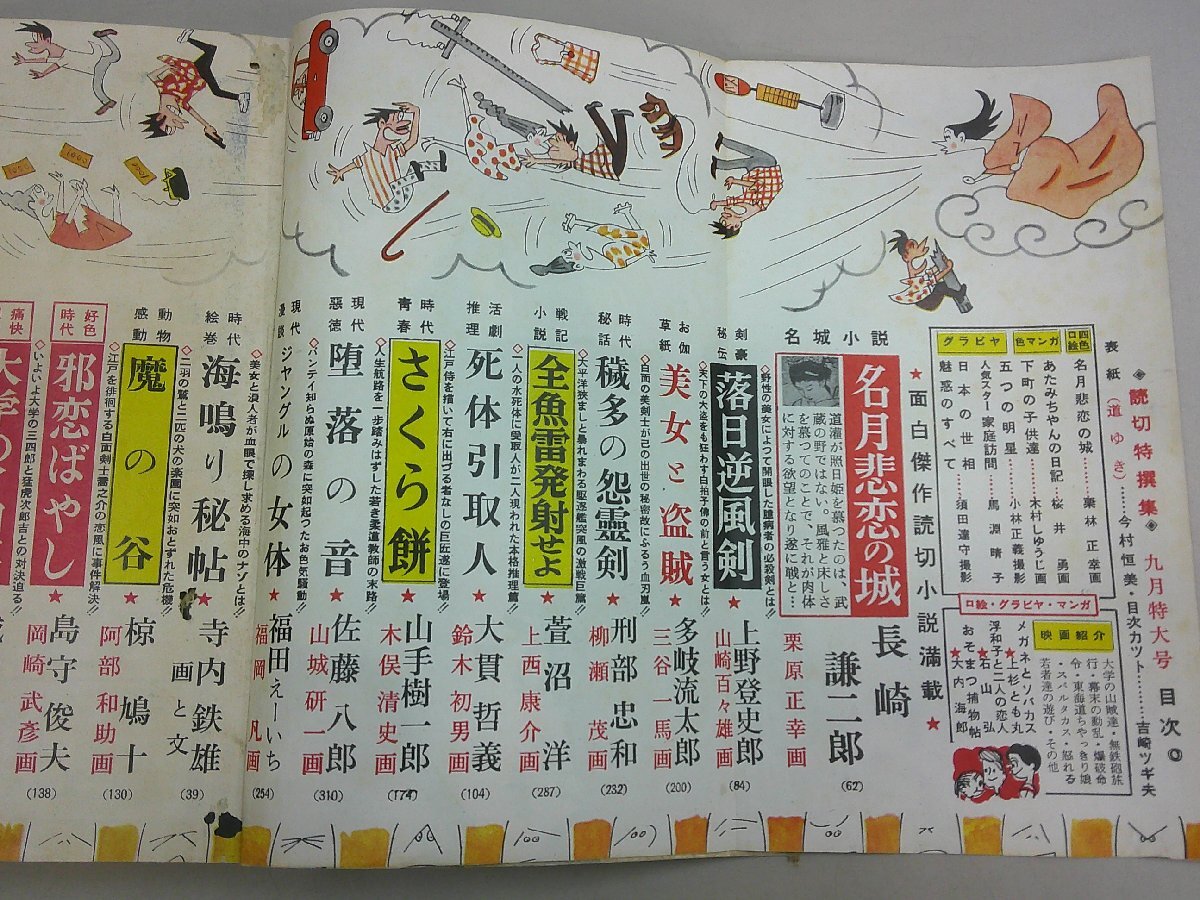 ◈読切特撰集◈ 九月特大号 目次
表紙(道ゆき)……今村恒美・目次カット……吉崎ツギ夫
四色口絵
名月悲恋の城……栗林正幸画
色マンガ
あたみちゃんの日記……桜井勇画
下町の子供達……木村しゅうじ画
グラビヤ
五つの明星……小林正義撮影
人気スター家庭訪問……馬淵晴子
日本の世相
魅惑のすべて……須田達守撮影
口絵・グラビヤ・マンガ
メガネとソバカス
★上杉とも丸
浮和子と二人の恋人
★石山弘
おそまつ捕物帖
★大内海郎
映画紹介
大学の山賊達・無鉄砲旅
行・幕末の動乱・爆破命
令・東海道ちゃっきり娘
・スパルタカス・怒れる
若者達の遊び・その他
★面白傑作読切小説満載★
名城小説
名月悲恋の城
道灌が照日姫を慕つたのは、武
蔵の野ではない。風雅と床しさ
を慕つてのことで、それが肉体
に対する欲望となり遂に戦と…
長崎謙二郎
栗原正幸画
(62)
◇野性の美女によつて開眼した臆病者の必殺剣とは!!
剣豪秘伝
落日逆風剣
★
上野登史郎
山崎百々雄画
(84)
◇天下の大盗をも狂わす白拍子佛の前と言う女とは!!
お伽草紙
美女と盗賊
★
多岐流太郎
三谷一馬画
(200)
◇白面の美剣士が己の出世の秘密故にふるう血刃嵐!!
時代秘話
穢多の怨霊剣
★
刑部忠和
柳瀬茂画
(232)
◇太平洋狭ましと暴れまわる駆逐艦突風の激戦巨篇!!
戦記小説
全魚雷発射せよ
★
萱沼洋
上西康介画
(287)
◇一人の水死体に受取人が二人現われた本格推理篇!!
活劇推理
死体引取人
★
大貫哲義
鈴木初男画
(104)
◇江戸侍を描いて右に出づる者なしの巨匠遂に登場!!
時代青春
さくら餅
★
山手樹一郎
木俣清史画
(174)
◇人生航路を一歩踏みはずした若き柔道教師の末路!!
現代悪徳
堕落の音
★
佐藤八郎
山城研一画
(310)
◇パンティ知らぬ原始の森に突如起つたお色気騒動!!
現代
ジャングルの女体
★
福田えーいち
福岡凡画
(254)
◇美女と浪人者が血眼で探し求める海中のナゾとは!!
時代絵巻
海鳴り秘帖
★
寺内鉄雄
画と文
(39)
◇二羽の鷲と二匹の犬の楽園に突如おとずれた危機!!
動物感動
魔の谷
★
椋鳩十
阿部和助画
(130)
◇江戸を俳徊する白面剣士雷之介の恋風に事件解決!!
好色時代
邪恋ばやし
★
島守俊夫
岡崎武彦画
(138)
◇いよいよ大学の三四郎と猛虎次郎吉との対決迫る!!
痛快